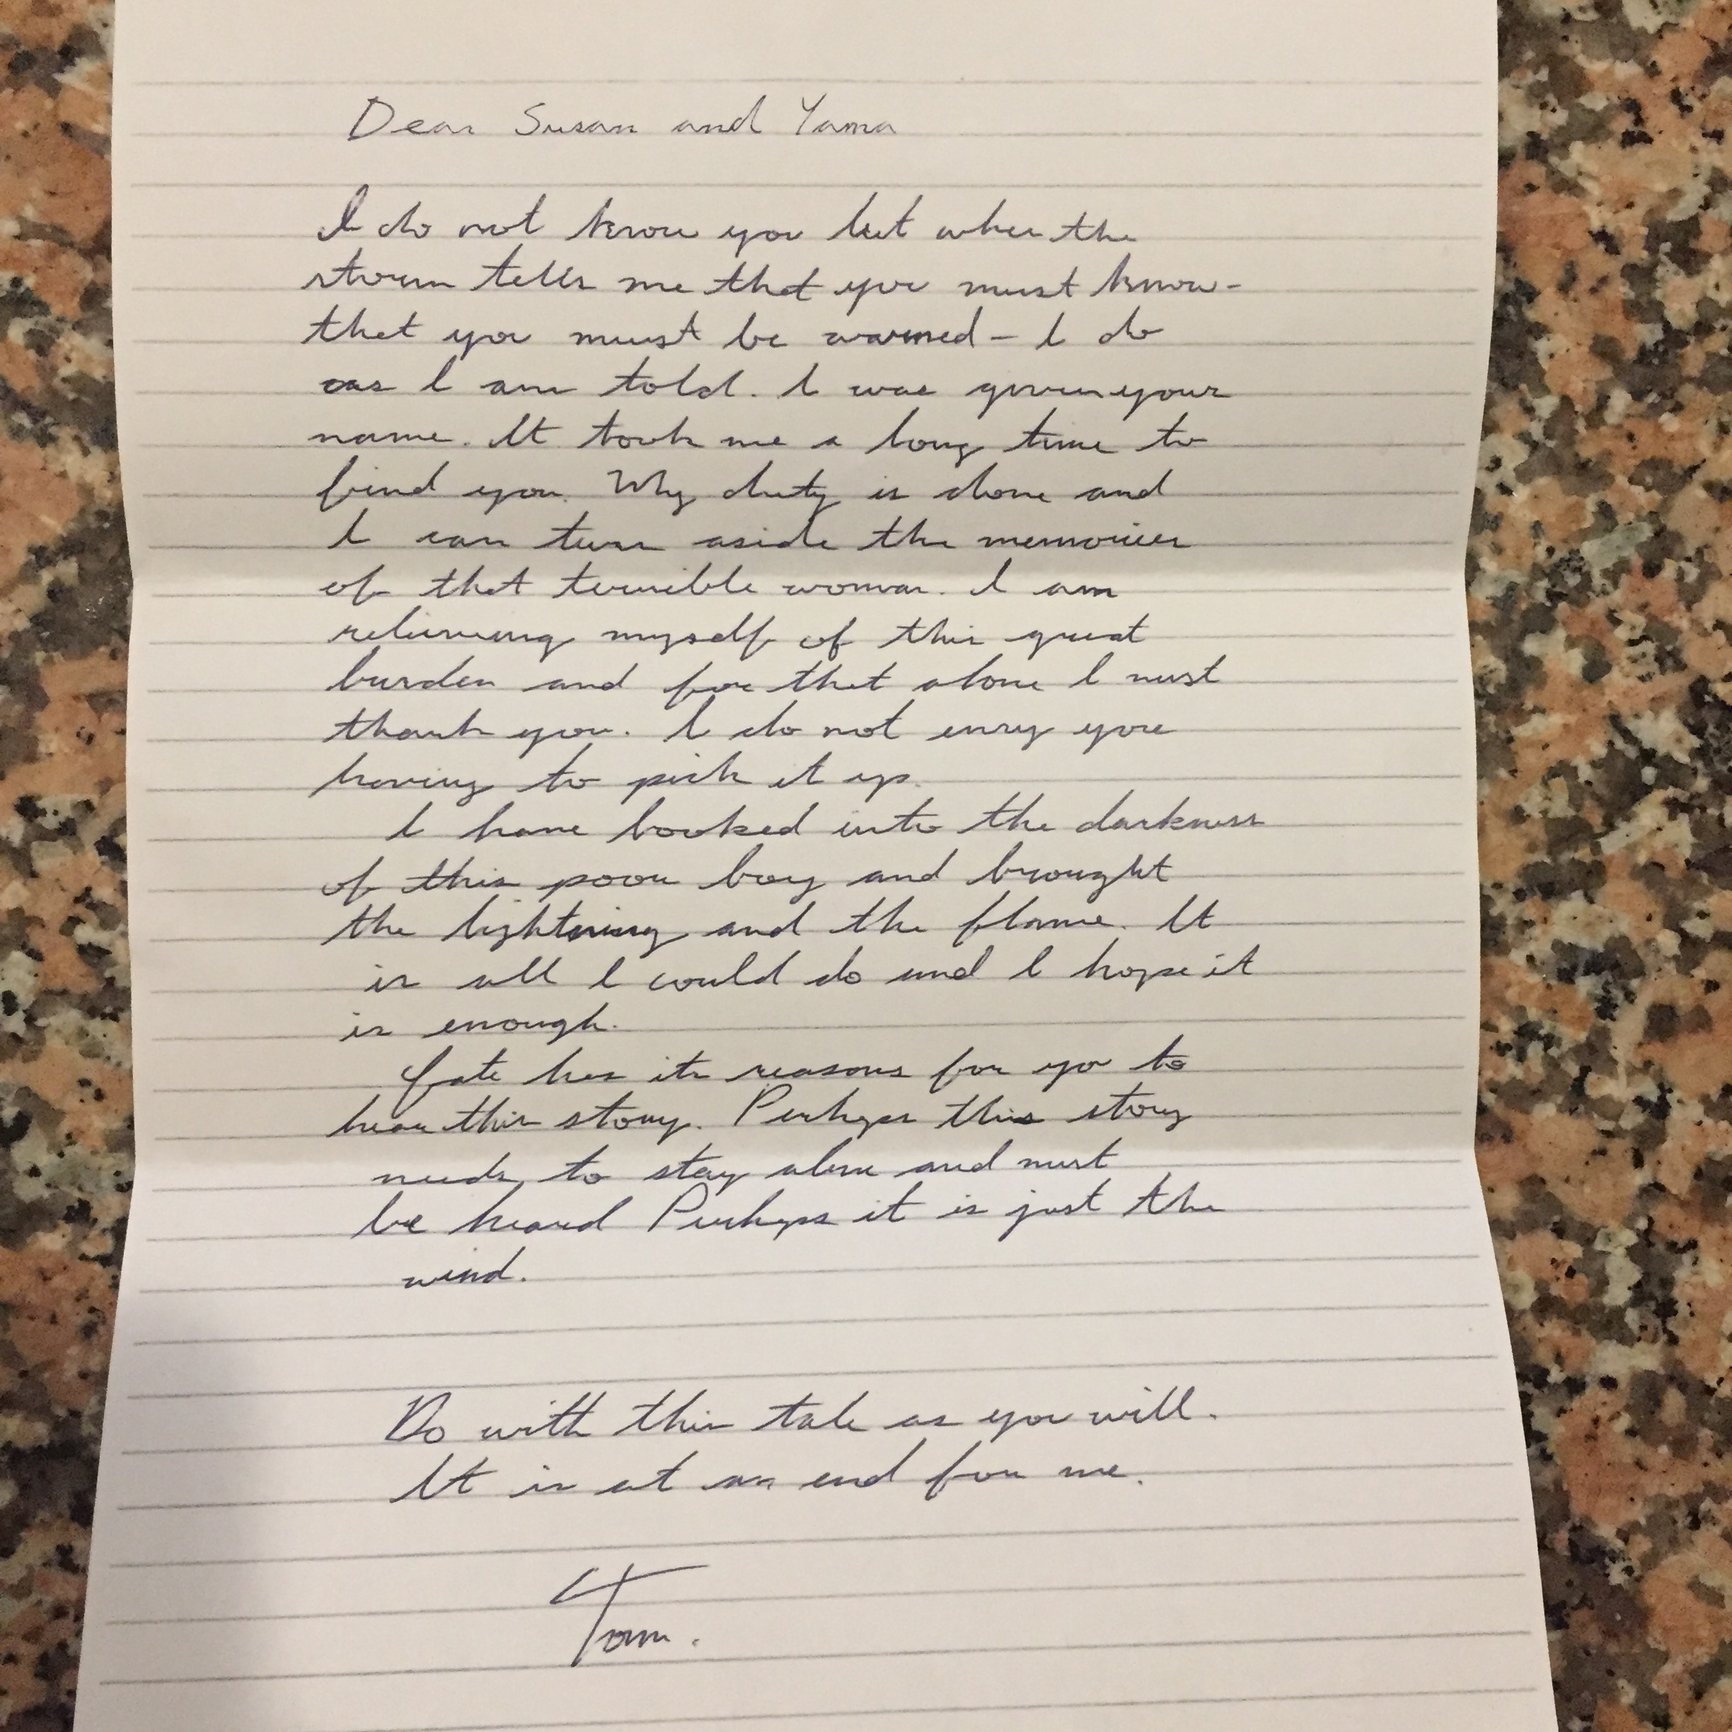 Dear Susan and Yama
I do not know you but when the
storm tells me that you must know -
that you must be warned - I do
as I am told. I was given your
name. It took me a long time to
find you. My duty is done and
I can turn aside the memories
of that terrible woman. I am
relieving myself of this great
burden and for that alone I must
thank you. I do not envy you
having to pick it up.
I have looked into the darkness
of this poor boy and brought
the lightning and the flame. It
is all I could do and I hope it
is enough.
Fate has its reasons for yo to
hear this story. Perhaps this story
needs to stay alive and must
be heard Perhaps it is just the
wind.
Do with this tale as you will.
It is at an end for me.
Tom.